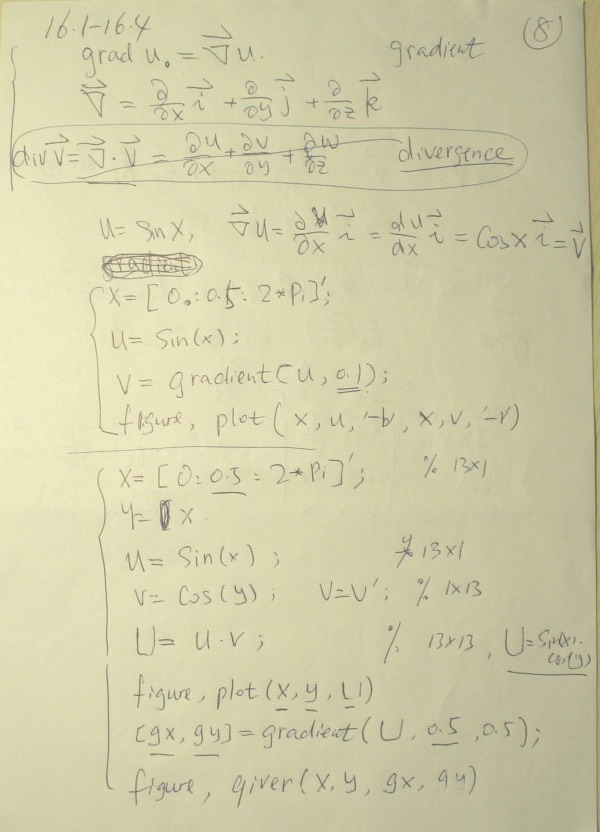 16.1-16.4
⑧
grad u. = ∇⃗ u. gradient
∇⃗ = ∂/∂x i⃗ + ∂/∂y j⃗ + ∂/∂z k⃗
div V⃗ = ∇⃗ · V⃗ = ∂u/∂x + ∂v/∂y + ∂w/∂z divergence
u = sin x, ∇⃗ u = ∂u/∂x i⃗ = du/dx i⃗ = cos x i⃗ = V⃗
X = [0.:0.5:2*Pi]';
u = sin(x);
v = gradient(u, 0.1);
figure, plot(x, u, '-b', x, v, '-r')
X = [0:0.5:2*Pi]'; % 13x1
y = x.
u = sin(x); % 13x1
v = cos(y); v=v'; % 1x13
U = u·v; % 13x13, U=sin(x)·cos(y)
figure, plot(x, y, U)
[gx, gy] = gradient(U, 0.5, 0.5);
figure, qiver(x, y, gx, gy)